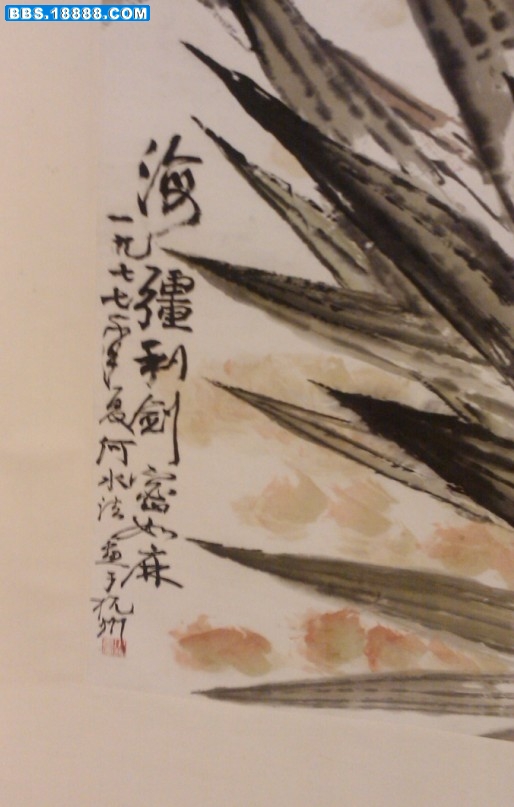 BBS.18888.COM
海疆利剑密如麻
一九七七年夏何水法画于杭州